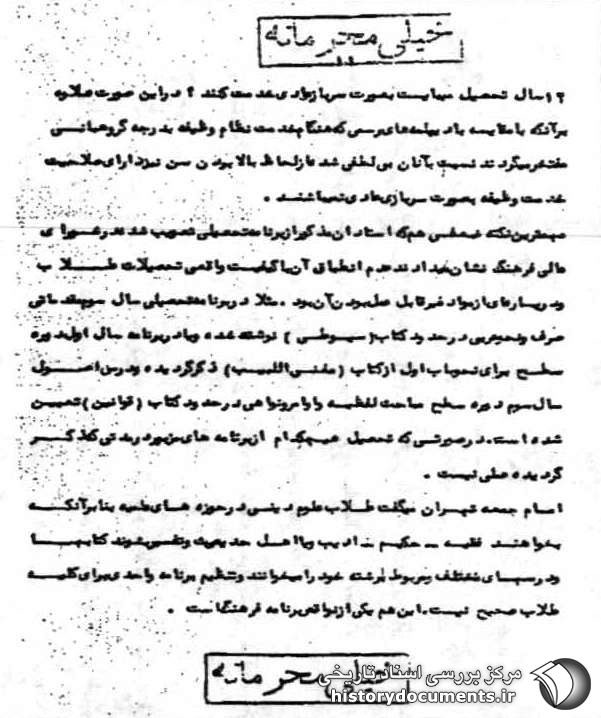 خیلی محرمانه
۱۲ سال تحصیل میبایست بصورت سرباز عادی خدمت کنند ؟ در این صورت علاوه
برآنکه با مقایسه با دیپلمه‌های رسمی که هنگام خدمت نظام وظیفه بدرجه گروهبانی
مفتخر میگردند نسبت بآنان بی لطفی شده از لحاظ بالا بودن سن نیز دارای صلاحیت
خدمت وظیفه بصورت سربازی عادی نمیباشند .
مهمترین نکته ضعفی هم که استادان مذکور از برنامه تحصیلی تصویب شده در شورای
عالی فرهنگ نشان میدادند عدم انطباق آن با کیفیت واقعی تحصیلات طلاب
و در بسیاری از موارد غیر قابل عمل بودن آن بود . مثلا در برنامه تحصیلی سال سوم مقدماتی
صرف و نحو عربی در حدود کتاب ( سیوطی ) نوشته شده و یا در برنامه سال اول دوره
سطح برای نحو باب اول از کتاب ( مغنی اللبیب ) ذکر گردیده و درس اصول
سال سوم دوره سطح مباحث لفظیه و اوامر و نواهی در حدود کتاب ( قوانین ) تعیین
شده است . در صورتی که تحصیل هیچکدام از برنامه های مزبور در مدتی که ذکر
گردیده عملی نیست .
امام جمعه تهران میگفت طلاب علوم دینی در حوزه های علمیه بنا بر آنکه
بخواهند فقیه - حکیم - ادیب و یا اهل حدیث و تفسیر شوند کتابها
و درسهای مختلف و مربوط برشته خود را میخوانند و تنظیم برنامه واحدی برای کلیه
طلاب صحیح نیست . این هم یکی از نواقص برنامه فرهنگ است .
خیلی محرمانه
مرکز بررسی اسناد تاریخی
historydocuments.ir